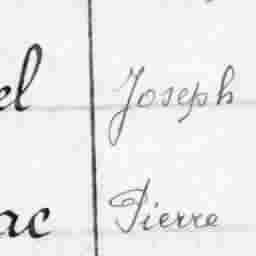 el Joseph
ac Pierre